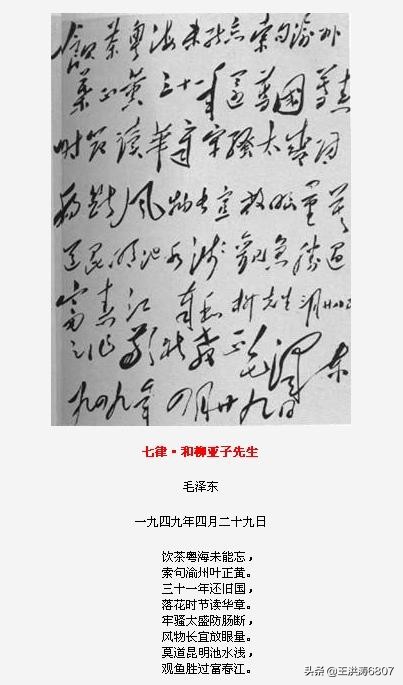 飲茶粤海未能忘索句渝州
葉正黄三十一年還舊國落花
时節读華章牢騷太盛防
腸断風物长宜放眼量莫
道昆明池水浅觀魚勝過
富春江 奉和柳先生三月廿八日
之作敬祈教正 毛泽东
一九四九年四月廿九日
七律·和柳亚子先生
毛泽东
一九四九年四月二十九日
饮茶粤海未能忘，
索句渝州叶正黄。
三十一年还旧国，
落花时节读华章。
牢骚太盛防肠断，
风物长宜放眼量。
莫道昆明池水浅，
观鱼胜过富春江。
头条 @王洪涛6807